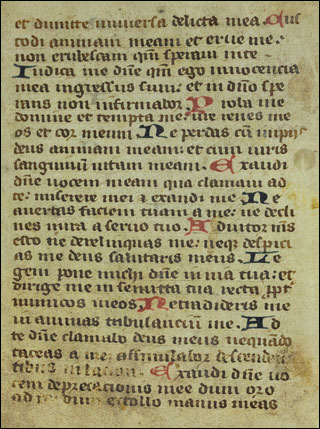 et dimitte universa delicta mea. Cus
todi animam meam et erue me:
non erubescam qm̄ speravi in te.
Iudica me dn̄e qm̄ ego innocencia
mea ingressus sum: et in dn̄o spe
rans non infirmabor. Proba me
domine et tempta me: ure renes me
os et cor meum. Ne perdas cū impiis
deus animam meam: et cum viris
sanguinū vitam meam. Exaudi
dn̄e vocem meam qua clamavi ad
te: miserere mei et exaudi me. Ne
avertas faciem tuam a me: ne decli
nes in ira a servo tuo. Adiutor m̄s
esto ne derelinquas me: neque despici
as me deus salutaris meus. Le
gem pone michi dn̄e in via tua: et
dirige me in semita tua recta ꝓpt̄
inimicos meos. Ne tradideris me
in animas tribulanciū me. Ad
te dn̄e clamabo deus meus ne
taceas a me: assimilabor descenden
tibus in Exaudi dn̄e vo
cem deprecacionis mee dum oro
ad te: dum extollo manus meas